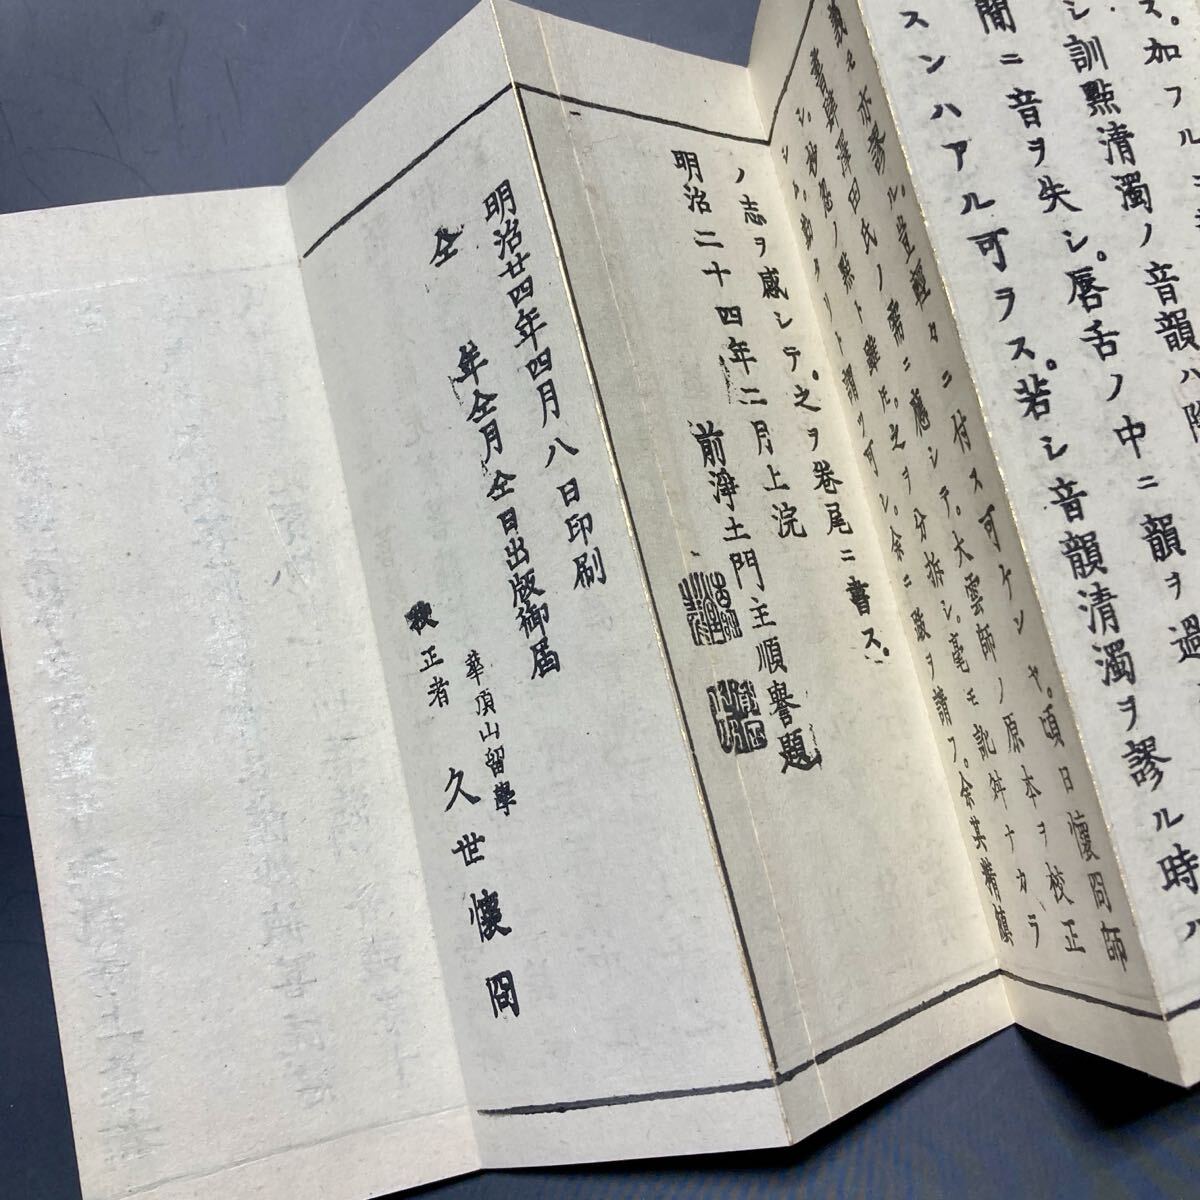 ス。加フル
シ訓點清濁ノ音韻ハ
間ニ音ヲ失シ。唇舌ノ中ニ韻ヲ過
スンハアル可ラス。若シ音韻清濁ヲ謬ル時ハ
義モ亦謬ル。豈輕々ニ付ス可ケンヤ。頃日懷冏師
澤田氏ノ需ニ應シテ。大雲師ノ原本ヲ校正
シ。點ト雖モ。之ヲ分拆シ。毫モ訛舛ナカラ
ント。勤タリト謂ツ可シ。余ニ跋ヲ請フ。余其精愼
ノ志ヲ感シテ。之ヲ卷尾ニ書ス。
明治二十四年二月上浣
前淨土門主順譽題
明治廿四年四月八日印刷
仝年仝月仝日出版御届
華頂山留學
校正者 久世懷冏